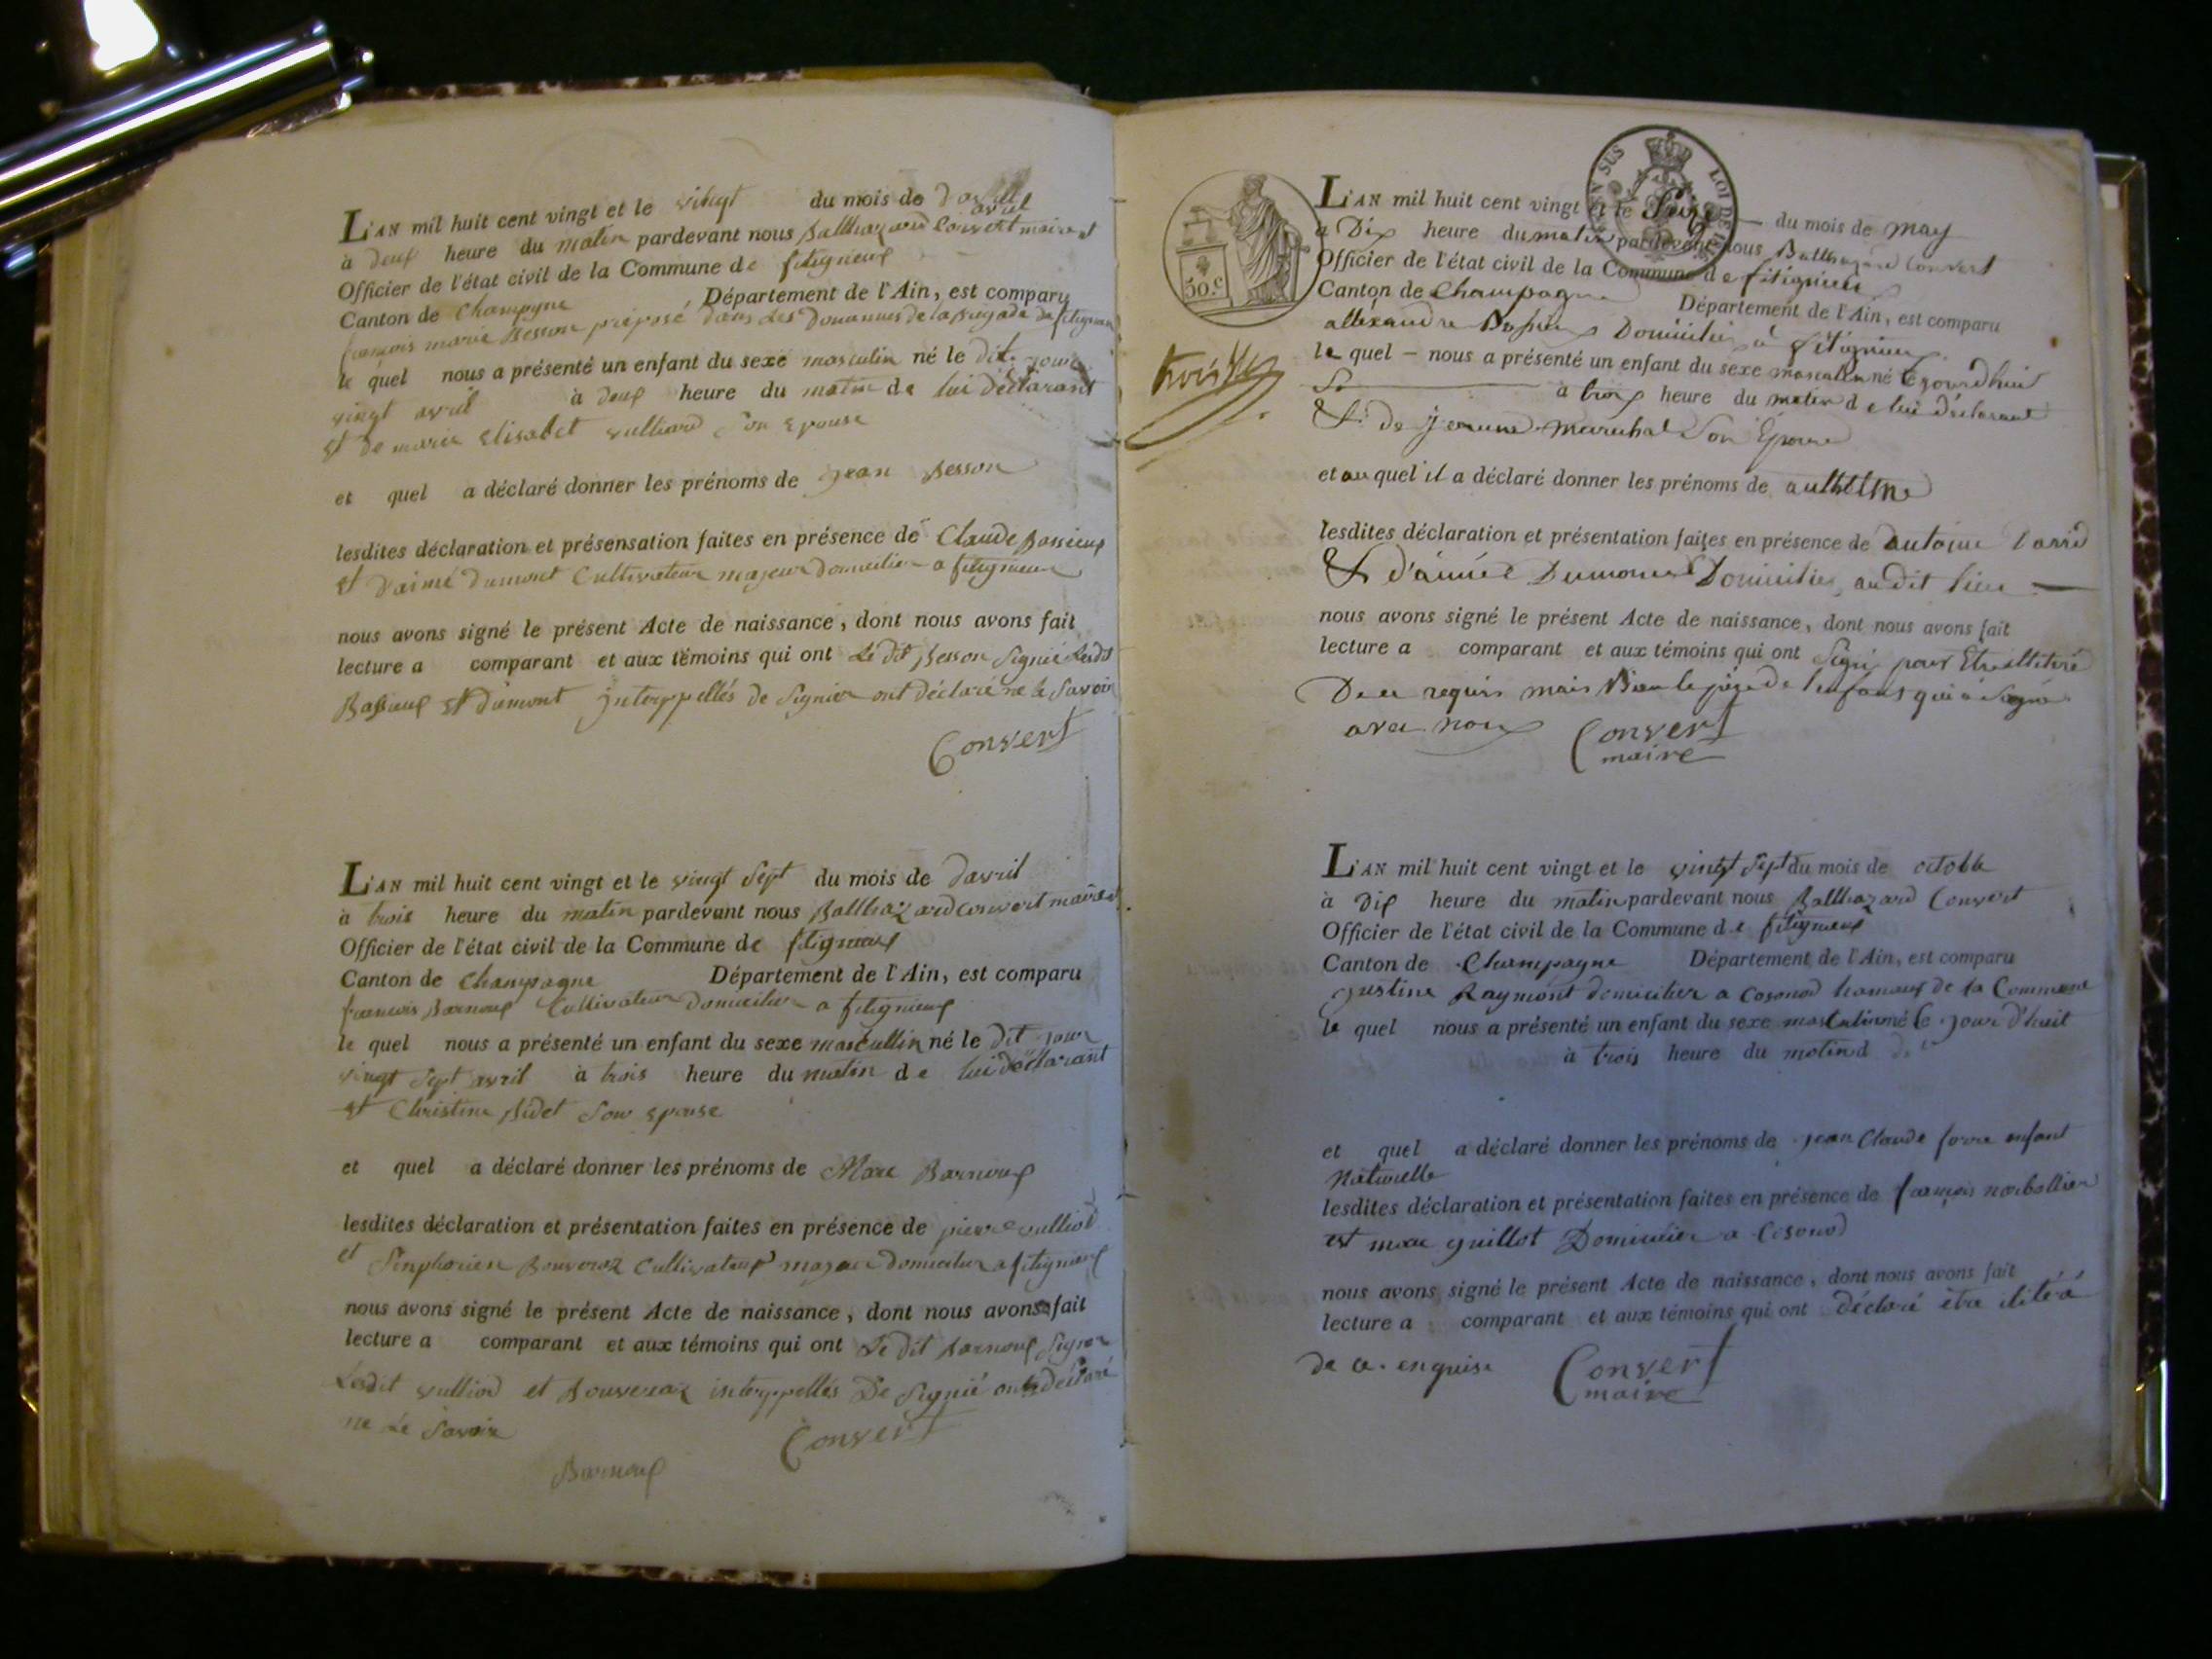 L'AN mil huit cent vingt et le vingt du mois de d'avril
avril
à deux heure du matin pardevant nous Balthazard Convert maire et
Officier de l'état civil de la Commune de fitignieux
Canton de Champagne Département de l'Ain, est comparu
françois marie Besson préposé dans les Douannes de la Brigade de fitignieu
le quel nous a présenté un enfant du sexe masculin né le dit jour
vingt avril à deux heure du matin de lui déclarant
et de marie Elisabet vulliard son Epouse
et quel a déclaré donner les prénoms de jean Besson
lesdites déclaration et présensation faites en présence de Claude Bassieux
et D'aimé dumont Cultivateur majeur domicilier a fitignieux
nous avons signé le présent Acte de naissance, dont nous avons fait
lecture a comparant et aux témoins qui ont Le dit Besson Signié lesdit
Bassieux et Dumont interppellés de Signier ont déclaré ne le Savoir
Convert
L'AN mil huit cent vingt et le vingt Sept du mois de davril
à trois heure du matin pardevant nous Balthazard convert maire et
Officier de l'état civil de la Commune de fitignieux
Canton de Champagne Département de l'Ain, est comparu
francois Barnoux Cultivateur domicilier a fitignieux
le quel nous a présenté un enfant du sexe mascullin né le dit jour
vingt Sept avril à trois heure du matin de lui déclarant
et Christine Bidet Son epouse
et quel a déclaré donner les prénoms de Marc Barnoux
lesdites déclaration et présentation faites en présence de pierre vulliod
et Sinphorien Bouveroz Cultivateur majeur domicilier a fitignieux
nous avons signé le présent Acte de naissance, dont nous avons fait
lecture a comparant et aux témoins qui ont Le dit Barnoux Signer
Lesdit vulliod et Bouveraz interppellés De Signié ont déclaré
ne Le Savoir
Convert
Barnoux
EN SUS LOI DE
30.c
L'AN mil huit cent vingt et le Seize du mois de may
à Dix heure du matin pardevant nous Balthazard Convert
Officier de l'état civil de la Commune de fitignieu
Canton de Champagne Département de l'Ain, est comparu
allexandre Domicilié à fitignieux
le quel nous a présenté un enfant du sexe masculin né le jourdhuit
à trois heure du matin de lui déclarant
& de marechal Son Epouse
et au quel il a déclaré donner les prénoms de anthelme
lesdites déclaration et présentation faites en présence de antoine
& d'aimé Dumont Domicilié, au dit lieu
nous avons signé le présent Acte de naissance, dont nous avons fait
lecture a comparant et aux témoins qui ont pour illitéré
De ce requis mais Bien le père de l'enfant qui à Signé
avec nous
Convert
maire
L'AN mil huit cent vingt et le vingt Sept du mois de octobre
à Dix heure du matin pardevant nous Balthazard Convert
Officier de l'état civil de la Commune de fitignieux
Canton de Champagne Département de l'Ain, est comparu
justine Raymont domicilier a Cosonod hamaux de la Commune
le quel nous a présenté un enfant du sexe masculin né le jour d'huit
à trois heure du matin d
et quel a déclaré donner les prénoms de jean Claude enfant
Naturelle
lesdites déclaration et présentation faites en présence de françois
et marc guillot Domicilier a Cosonod
nous avons signé le présent Acte de naissance, dont nous avons fait
lecture a comparant et aux témoins qui ont déclaré etre
de ce enquise
Convert
maire